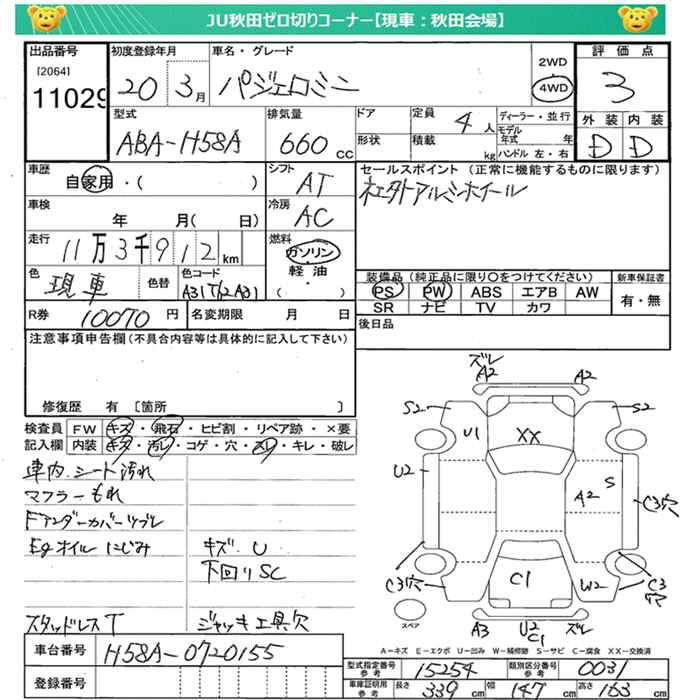 JU秋田ゼロ切りコーナー【現車：秋田会場】
出品番号 初度登録年月 車名・グレード 2WD 評価点
[2064]
11029 20 3月 パジェロミニ 4WD 3
型式 排気量 ドア 定員 4人 ディーラー・並行 外装 内装
ABA-H58A 660cc 形状 積載 kg モデル年式 年 ハンドル 左・右 D D
車歴 シフト セールスポイント（正常に機能するものに限ります）
自家用・（ ） AT 社外アルミホイール
車検 冷房
年 月（ 日） AC
走行 燃料
11万3千912km ガソリン
色 色替 色コード 軽油 装備品（純正品に限り○をつけてください） 新車保証書
現車 A31T(2A31) ・（ ） PS PW ABS エアB AW 有・無
SR ナビ TV カワ
R券 10070円 名変期限 月 日 後日品
注意事項申告欄（不具合内容等は具体的に記入して下さい）
修復歴 有〔箇所 〕
検査員 FW キズ・飛石・ヒビ割・リペア跡・×要
記入欄 内装 キズ・汚レ・コゲ・穴・スレ・キレ・破レ
車内.シート汚れ
マフラーもれ
Fアンダーカバーツブレ
Egオイルにじみ キズ.U
下回りSC
スタッドレスT ジャッキ工具欠
ズレ
A2 A2
S2 S2
U1 XX
U2 A2 S C3穴
C3穴 C1 W2 C3穴
スペア A3 U2 C1 ズレ
A－キズ E－エクボ U－凹み W－補修跡 S－サビ C－腐食 XX－交換済
車台番号 H58A-0720155
登録番号
型式指定番号 参考 15254 類別区分番号 参考 0031
車庫証明用 参考 長さ 339cm 幅 147cm 高さ 163cm